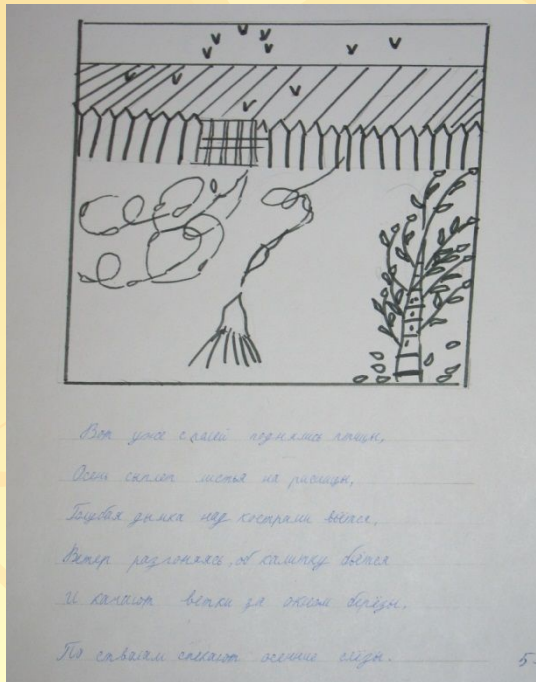 Вот уже с полей поднялись птицы,
Осень сыплет листья на ресницы,
Голубая дымка над кострами вьётся,
Ветер разгоняясь, об калитку бьётся
И качают ветки за окном берёзы,
По стволам стекают осенние слёзы.
5